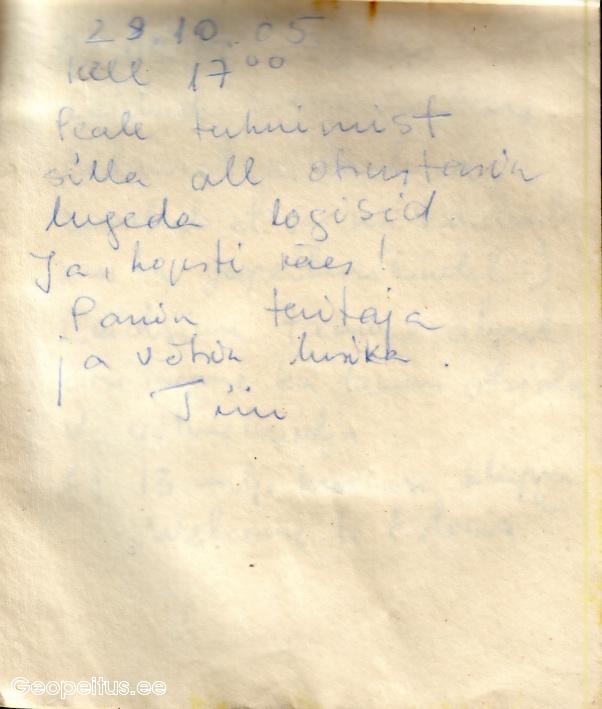 29.10.05
kell 17⁰⁰
Peale tuhnimist
silla all otsustasin
lugeda logisid.
Ja, hopsti käes!
Panin teritaja
ja võtsin lusika.
Tiiu
Geopeitus.ee